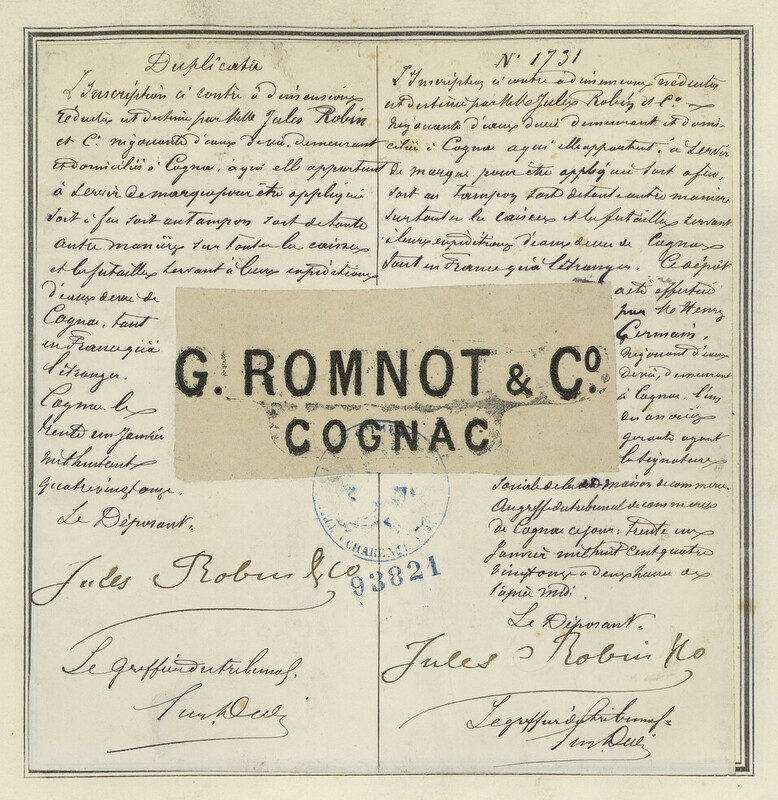 Duplicata
L'Inscription ci contre à dimensions
réduites est destinée par MM Jules Robin
et Cie négociants d'eaux de vie, demeurant
et domiciliés à Cognac, à qui elle appartient
à servir de marque pour être appliquée
soit à feu soit au tampon soit de toute
autre manière sur toutes les caisses
et les futailles servant à leurs expéditions
d'eaux de vie de
Cognac, tant
en France qu'à
l'étranger.
Cognac le
trente un Janvier
mil huit cent
quatre vingt onze.
Le Déposant.
Jules Robin & Co
Le greffier du tribunal.
N° 1731
L'Inscription ci contre à dimensions réduites
est destinée par MM Jules Robin et Cie
négociants d'eaux de vie demeurant et domi-
ciliés à Cognac à qui elle appartient, à servir
de marque pour être appliquée soit à feu,
soit au tampon soit de toute autre manière
sur toutes les caisses et les futailles servant
à leurs expéditions d'eaux de vie de Cognac
tant en France qu'à l'étranger. Ce dépôt
a été effectué
par Mr Henry
Germain,
négociant d'eaux
de vie, demeurant
à Cognac, l'un
des associés
gerants ayant
la signature
sociale de la maison de commerce.
Au greffe du tribunal de commerce
de Cognac ce jour: trente un
Janvier mil huit cent quatre
vingt onze à deux heures de
l'après midi.
Le Déposant.
Jules Robin & Co
Le greffier du tribunal
G. ROMNOT & Co.
COGNAC
CHARENTE
93821